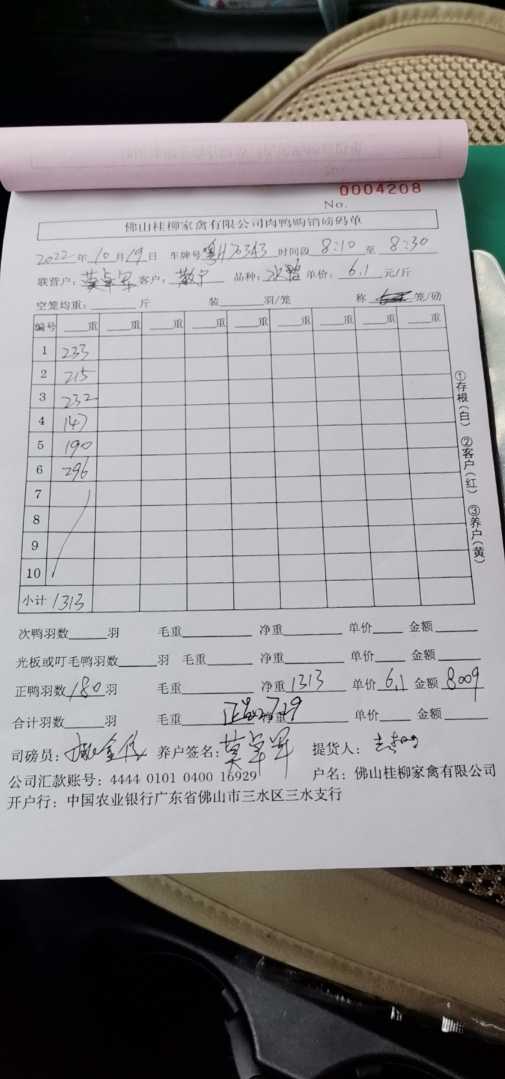 0004208
No.
佛山桂柳家禽有限公司肉鸭购销磅码单
2022年10月19日 车牌号粤H 时间段 8:10 至 8:30
联营户: 莫 军 客户: 散户 品种: 水鸭 单价: 6.1 元/斤
空笼均重: 斤 装 羽/笼 称 笼/磅
编号 重 重 重 重 重 重 重 重
1 233
2 215
3 232
4 147
5 190
6 296
7
8
9
10
小计 1313
①存根(白) ②客户(红) ③养户(黄)
次鸭羽数 羽 毛重 净重 单价 金额
光板或叮毛鸭羽数 羽 毛重 净重 单价 金额
正鸭羽数 180 羽 毛重 净重 1313 单价 6.1 金额 8009
合计羽数 羽 毛重 净重 单价 金额
司磅员: 养户签名: 莫 军 提货人:
公司汇款账号: 4444 0101 0400 16929 户名: 佛山桂柳家禽有限公司
开户行: 中国农业银行广东省佛山市三水区三水支行